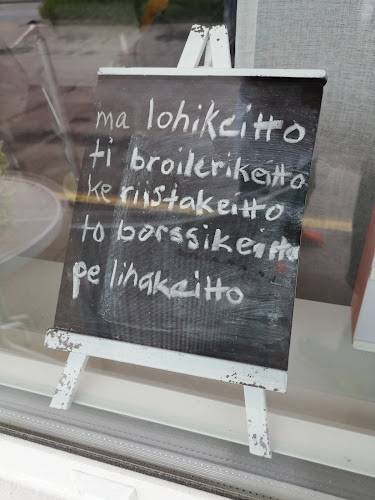 ma lohikeitto
ti broilerikeitto
ke riistakeitto
to borssikeitto
pe lihakeitto